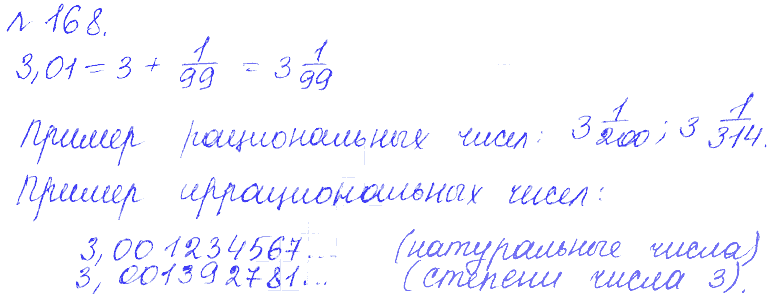 № 168.
3,01 = 3 + 1/99 = 3 1/99
Пример рациональных чисел: 3 1/200; 3 1/314.
Пример иррациональных чисел:
3,001234567... (натуральные числа)
3,001392781... (степени числа 3).